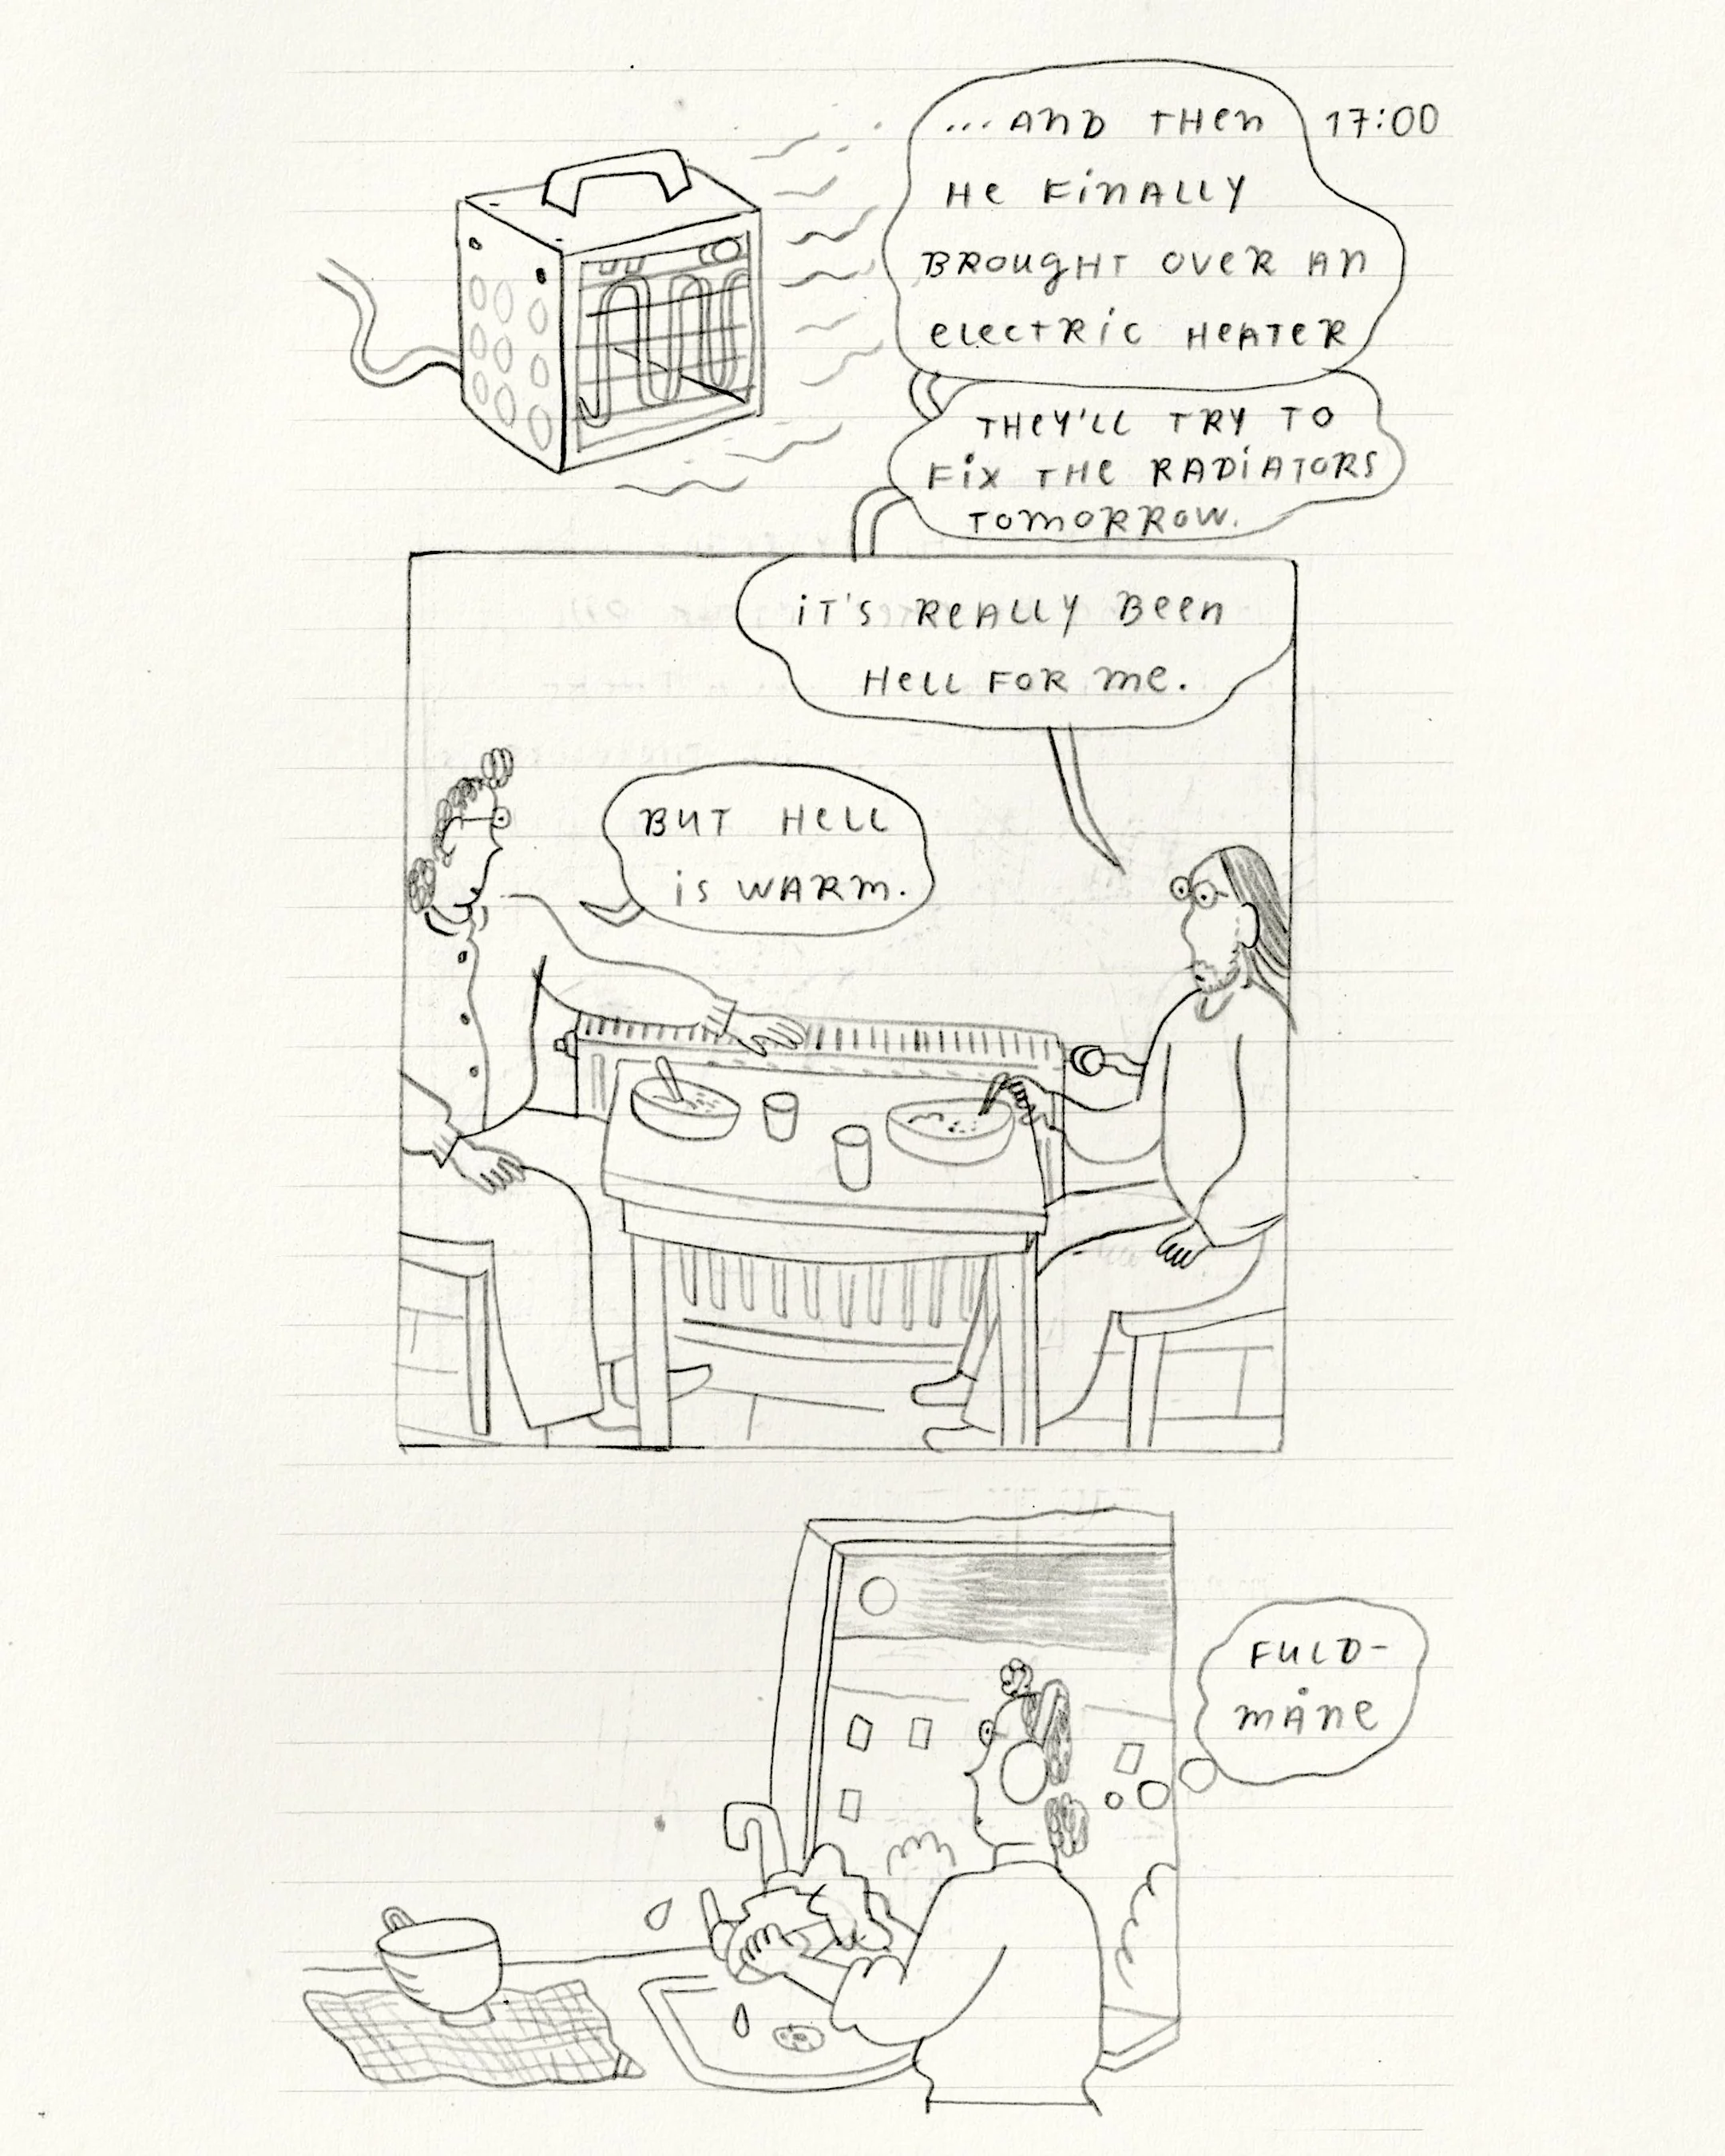 ...AND THEN
17:00
HE FINALLY
BROUGHT OVER AN
ELECTRIC HEATER
THEY'LL TRY TO
FIX THE RADIATORS
TOMORROW.
IT'S REALLY BEEN
HELL FOR ME.
BUT HELL
IS WARM.
FULD-
MÅNE